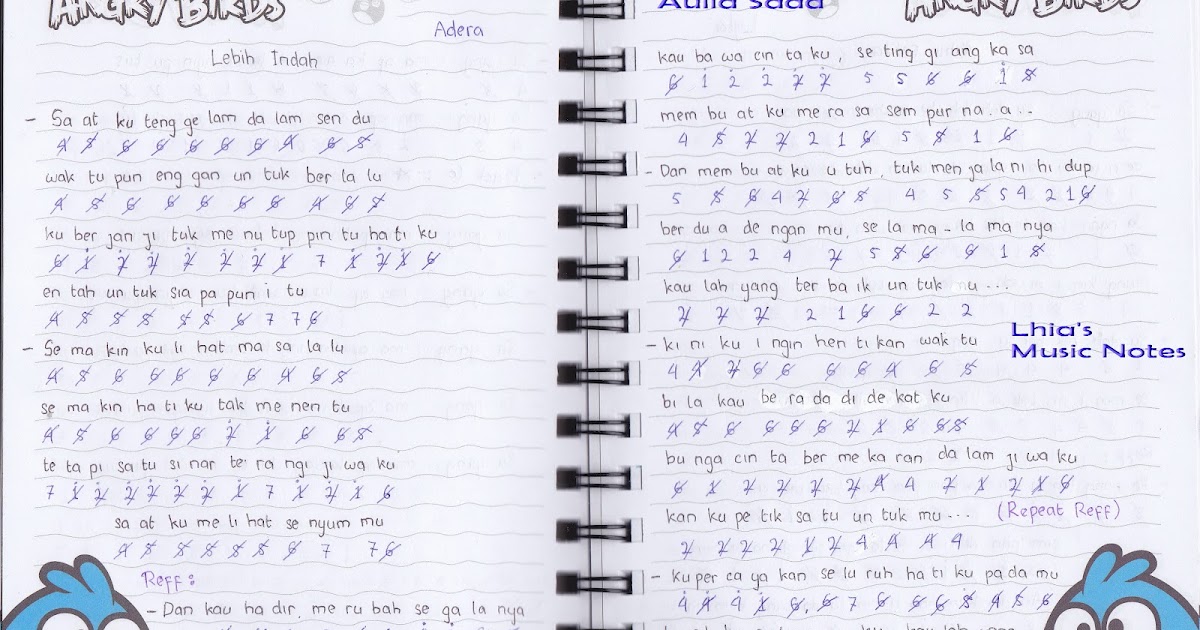 ANGRY BIRDS
Adera
Lebih Indah
- Sa at ku teng ge lam da lam sen du
4 5 6 6 6 6 6 4 6 5
wak tu pun eng gan un tuk ber la lu
4 5 6 6 6 6 6 4 6 5
ku ber jan ji tuk me nu tup pin tu ha ti ku
6 1 2 2 2 2 2 1 7 1 2 1 6
en tah un tuk sia pa pun i tu
4 5 5 5 5 5 6 7 7 6
- Se ma kin ku li hat ma sa la lu
4 5 6 6 6 6 6 4 6 5
se ma kin ha ti ku tak me nen tu
4 5 6 6 6 6 2 1 6 6 5
te ta pi sa tu si nar te ra ngi ji wa ku
7 1 2 2 2 2 2 1 7 1 2 1 6
sa at ku me li hat se nyum mu
4 5 5 5 5 5 6 7 7 6
Reff :
- Dan kau ha dir, me ru bah se ga la nya
Aulia Sada
ANGRY BIRDS
kau ba wa cin ta ku, se ting gi ang ka sa
6 1 2 2 2 2 5 5 6 6 1 5
mem bu at ku me ra sa sem pur na . a . .
4 5 2 2 2 1 6 5 5 1 6
- Dan mem bu at ku u tuh, tuk men ja la ni hi dup
5 5 6 4 2 6 5 4 5 5 5 4 2 1 6
ber du a de ngan mu, se la ma - la ma nya
6 1 2 2 4 2 5 5 6 6 1 5
kau lah yang ter ba ik un tuk mu . . .
2 2 2 2 1 6 6 2 2
Lhia's
Music Notes
- ki ni ku i ngin hen ti kan wak tu
4 4 2 6 6 6 6 4 6 5
bi la kau be ra da di de kat ku
4 5 6 6 6 6 2 1 6 6 5
bu nga cin ta ber me ka ran da lam ji wa ku
6 1 2 2 2 2 4 4 2 1 2 1 6
kan ku pe tik sa tu un tuk mu . . . (Repeat Reff)
2 2 2 2 1 2 4 4 4 4
- Ku per ca ya kan se lu ruh ha ti ku pa da mu
4 4 4 1 6 6 7 6 6 6 5 4 5 6